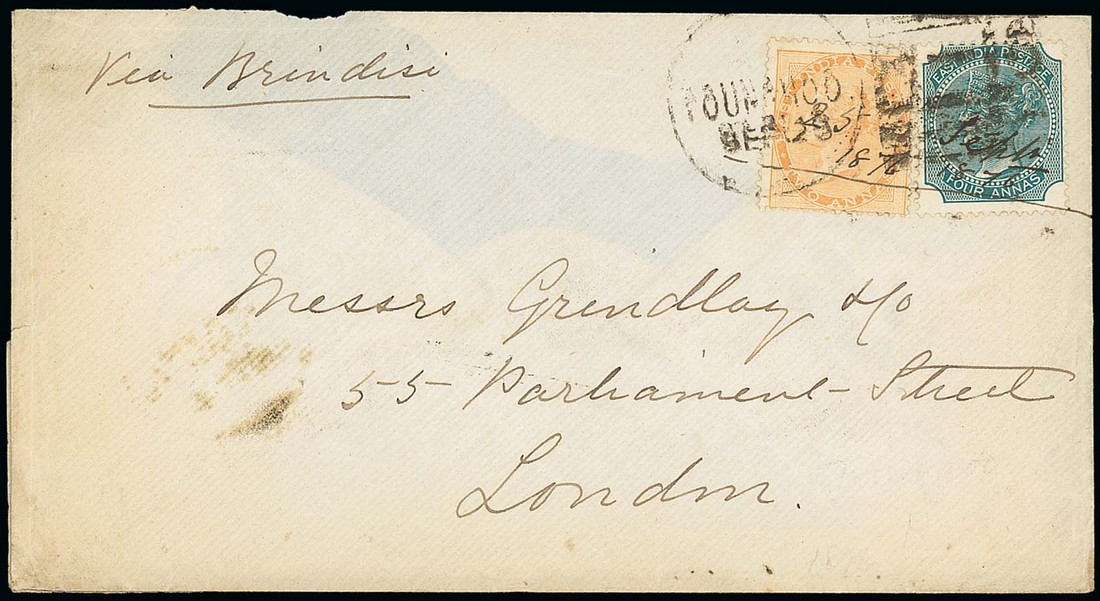 Via Brindisi
EAST INDIA POSTAGE
FOUR ANNAS
INDIA
TWO ANNAS
1876
Messrs Grindlay & Co
55 Parliament Street
London.